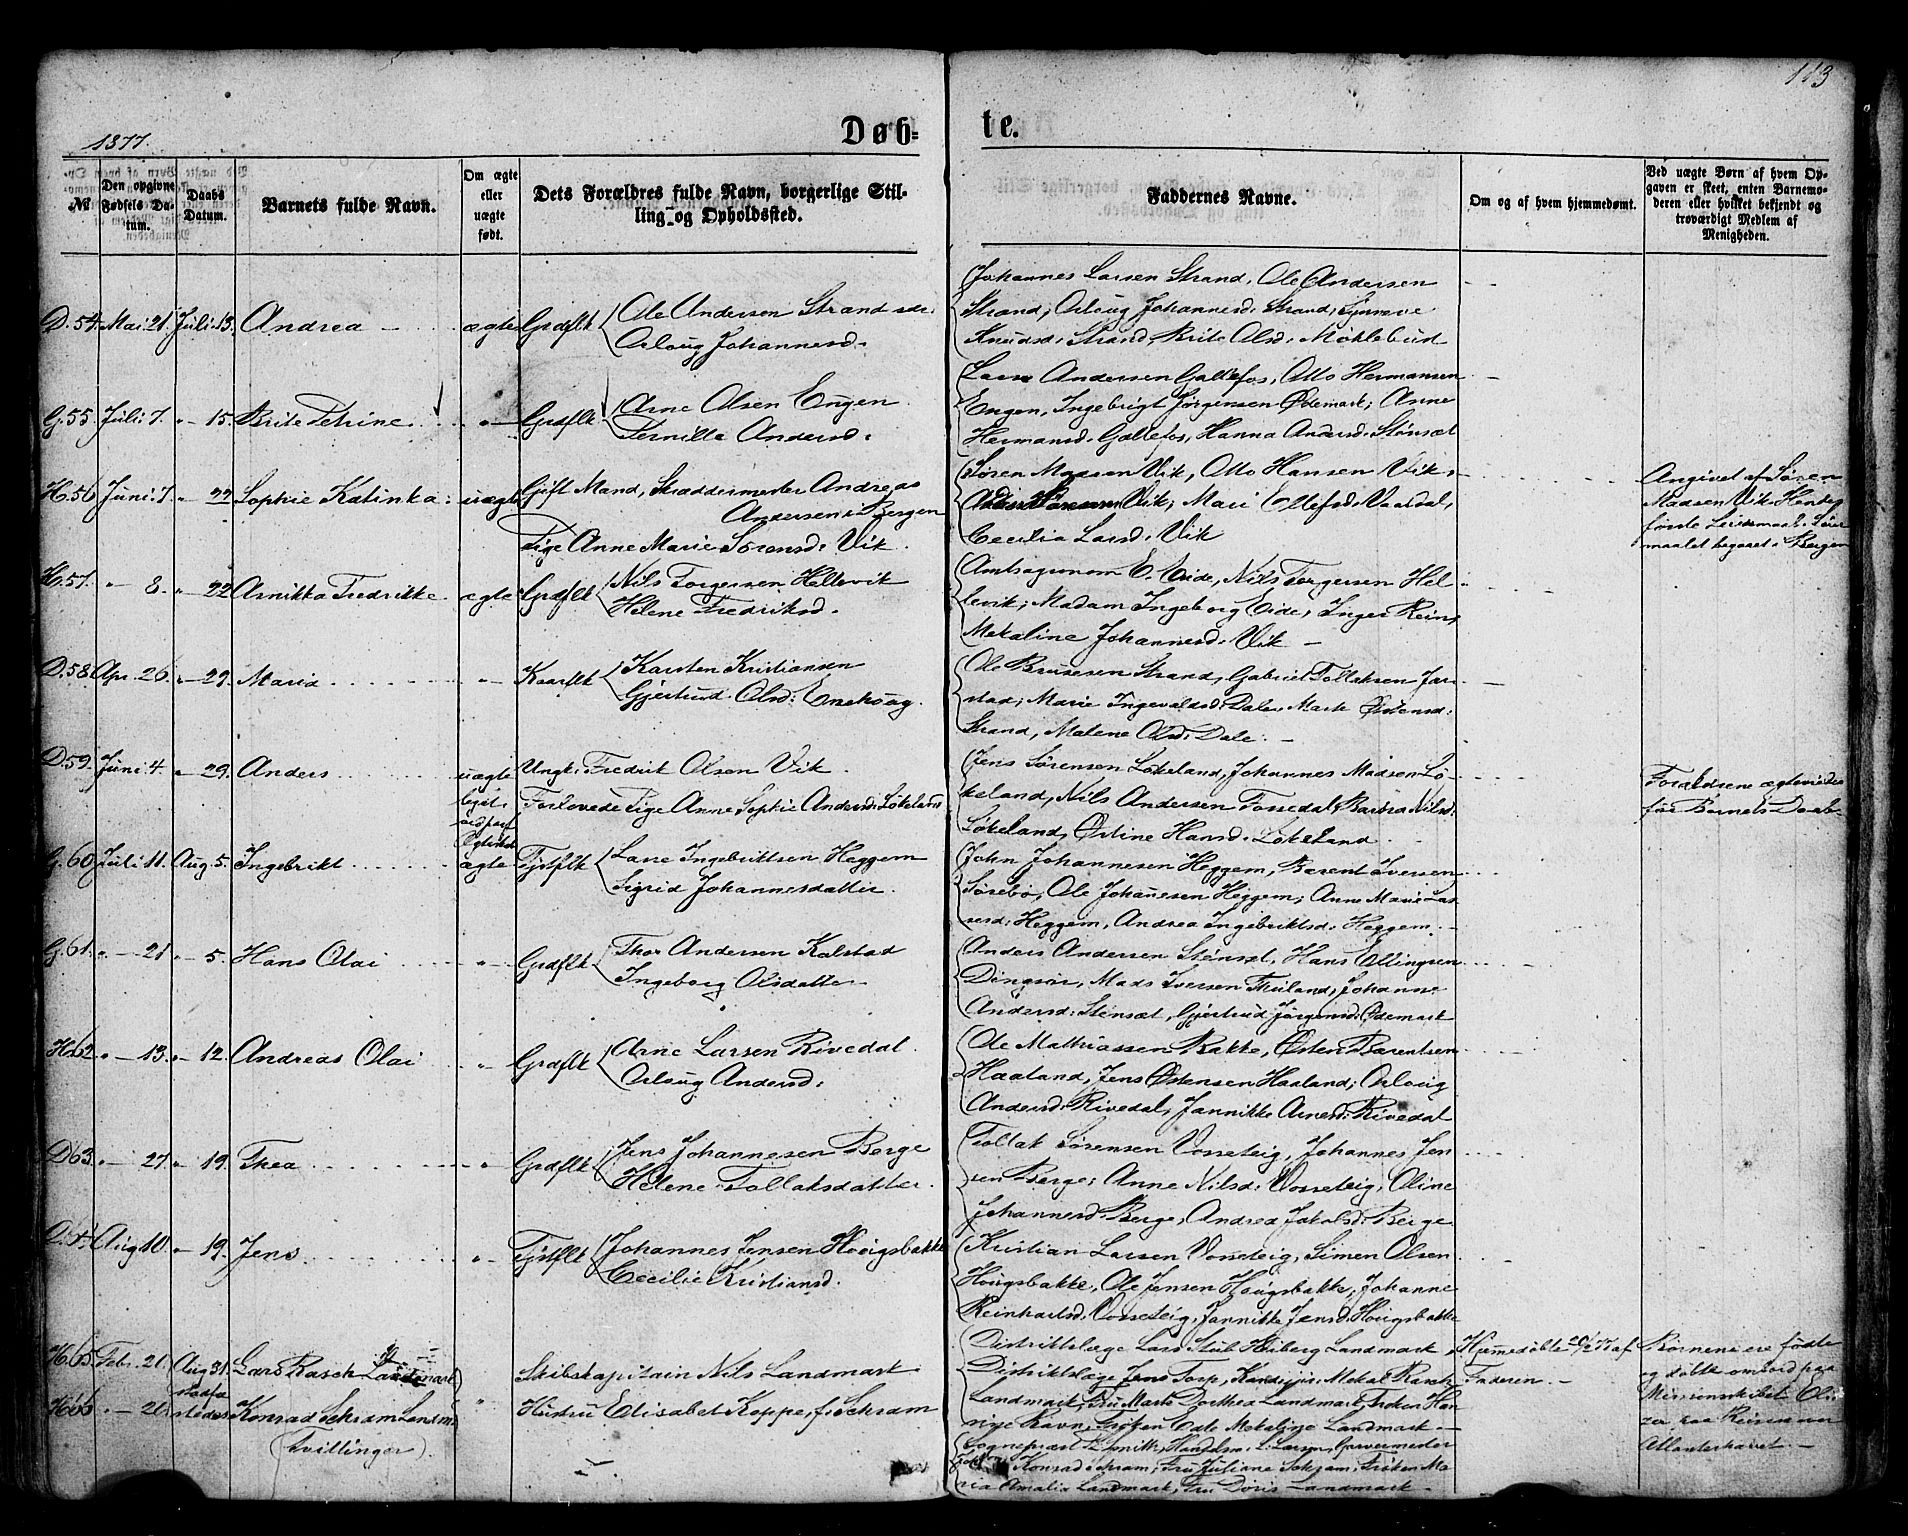 113
1877.
Døb-
te.
№
Den opgivne Fødsels Datum.
Daabs Datum.
Barnets fulde Navn.
Om ægte eller uægte født.
Dets Forældres fulde Navn, borgerlige Stilling og Opholdssted.
Faddernes Navne.
Om og af hvem hjemmedømt.
Ved uægte Børn af hvem Opgaven er skeet, enten Barnemoderen eller hvilket bekjendt og troværdigt Medlem af Menigheden.
D. 54. Mai 21. Juli 13. Andrea ægte Grdflk Ole Andersen Strand
Oloug Johannesd.
Johannes Larsen Strand, Ole Andersen
Strand, Oloug Johannesd. Strand, Synneve
Knudsd. Strand, Brite Olsd. Møklebust
G. 55. Juli 7. " 15. Brite Petrine " Grdflk Arne Olsen Engen
Pernille Andersd.
Lars Andersen Gallefos, Otto Hermansen
Engen, Ingebrigt Jørgensen Ødemark, Anne
Hermansd. Gallefos, Hanna Andersd. Stensæt
H. 56 Juni 7. " 22 Sophie Katinka uægte Gift Mand, Skræddermester Andreas
Andersen i Bergen
Pige Anne Marie Sørensd. Vik.
Søren Madsen Vik, Otto Hansen Vik,
Vik, Mari Ellefsd. Vaardal,
Cecilia Larsd. Vik
Angivet af Søren
Madsen Vik. Hendes
første Leiermaal. Leier
maalet begaaet i Bergen
H. 57. " 8. " 22 Annikka Fredrikke ægte Grdflk Nils Torgersen Hellevik
Helene Fredriksd.
Amtsagronom E. Eide, Nils Torgersen Hel
levik, Madam Ingeborg Eide, Inger Reins
Mekaline Johannesd. Vik
D. 58. Apr. 26. " 29. Maria " Kaarflk Karsten Kristiansen
Gjertrud Olsd. Eneboug.
Ole Brudesen Strand, Gabriel Tollaksen Jar
stad, Marie Ingevaldsd. Dale, Marte Østensd.
Strand, Malene Olsd. Dale.
D. 59. Juni 4. " 29. Anders uægte Ungk. Fredrik Olsen Vik
legit. Forlovede Pige Anne Sophie Andersd. Løkeland
Jens Sørensen Løkeland, Johannes Madsen Lø-
keland, Nils Andersen Fossedal, Barbra Nilsd.
Løkeland, Østine Hansd. Løkeland
Forældrene ægteviedes
før Barnets Daab.
G. 60. Juli 11. Aug 5. Ingebrikt ægte Tjstflk Lars Ingebriktsen Heggem
Sigrid Johannesdatter.
John Johannesen Heggem, Barent Iversen
Sørebø, Ole Johanesen Heggem, Anne Marie Lar
sesd. Heggem, Andrea Ingebriktsd. Heggem.
G. 61. " 21 " 5. Hans Olai " Grdflk Thor Andersen Kalstad
Ingeborg Olsdatter
Anders Andersen Stensæt, Hans Ellingsen
Dingsør, Mads Iversen Thuland, Johanne
Andersd. Stensæt, Gjertrud Jørgensd. Ødemark
H. 62. " 13. " 12. Andreas Olai " Grdflk Arne Larsen Rivedal
Oloug Andersd.
Ole Mathiassen Bakke, Østen Barentsen
Haaland, Jens Østensen Haaland, Oloug
Andersd. Rivedal, Jannikke Arnesd. Rivedal
D 63. " 27 " 19. Thea " Grdflk Jens Johannesen Berge
Helene Tollaksdatter.
Tollak Sørensen Vosseteig, Johannes Jen
sen Berge, Anne Nilsd. Vosseteig, Oline
Johannesd. Berge, Andrea Jakobsd. Berge
Aug 10. " 19. Jens " Tjstflk Johannes Jensen Hougsbakke
Cecilie Kristiansd.
Kristian Larsen Vosseteig, Simen Olsen
Hougsbakke, Ole Jensen Hougsbakke, Johanne
Reinhartsd. Vosseteig, Jannikke Jensd. Hougsbakke
H. 65. Febr. 21. Aug 31. Lars Rasch Landmark
H 66 " 21 Konrad Schram Landm.
(Tvillinger).
Skibskapitain Nils Landmark
Hustru Elisabet Koppe, f. Schram
Distriktslæge Lars Stub Heiberg Landmark,
Distriktslæge Jens Torp, Mekal Rasch
Landmark, Fru Marte Dorthea Landmark, Frøken Han
Ravn, Frøken Eda Mekaline Landmark.
Sogneprest Smitt, Handelsm. L. Larsen, Garvermester
Konrad Schram, Fru Juliane Schram, Frøken Ma
ria Amalia Landmark, Fru Doris Landmark
Hjemmedøbte 77 af
Faderen.
Børnene ere fødte
og døbte ombord paa
Missionsskibet Eli
zer paa Reisen over
Atlanterhavet.